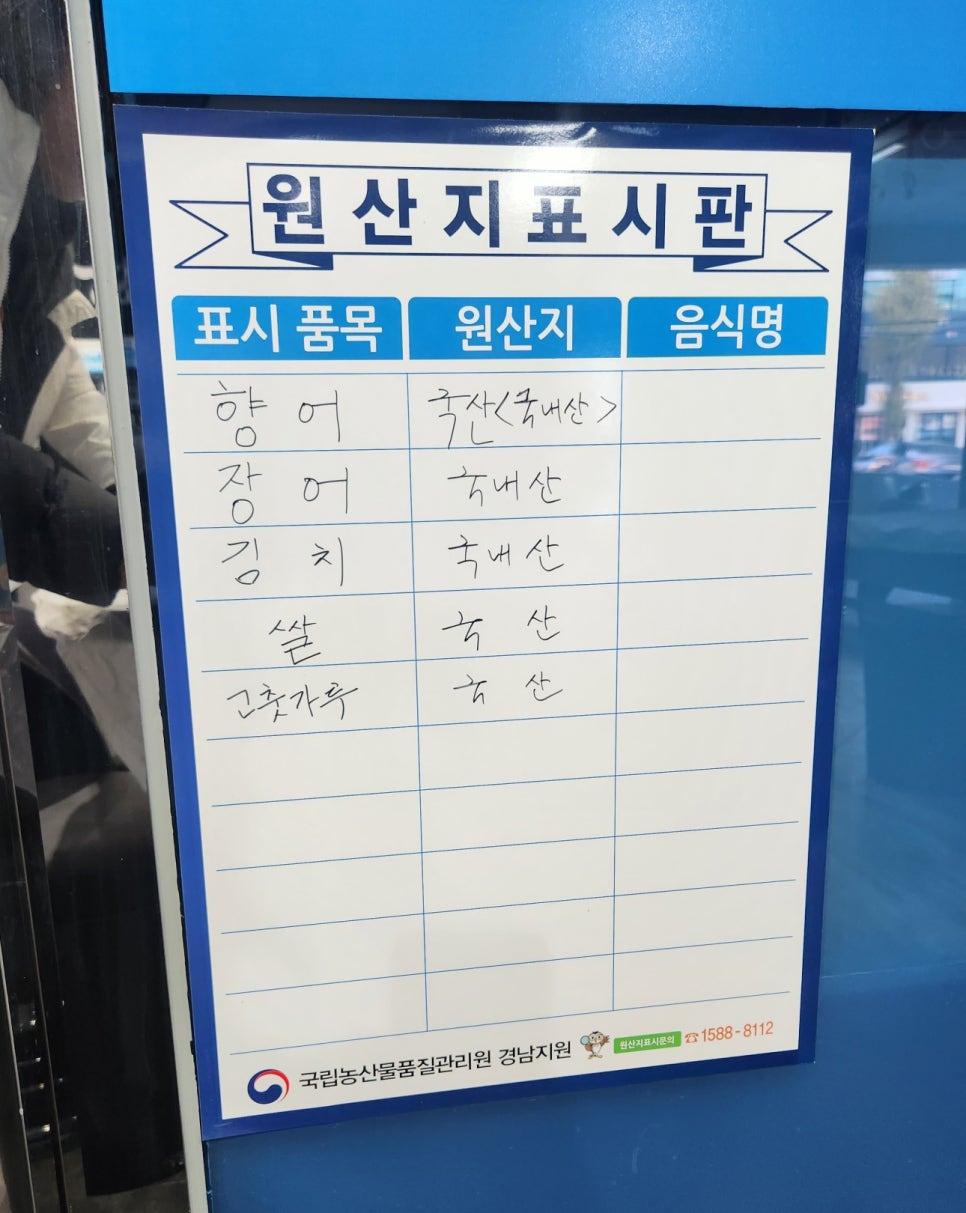 원산지표시판
표시 품목 원산지 음식명
향어 국산<국내산>
장어 국내산
김치 국내산
쌀 국산
고춧가루 국산
국립농산물품질관리원 경남지원 원산지표시문의 ☎1588-8112